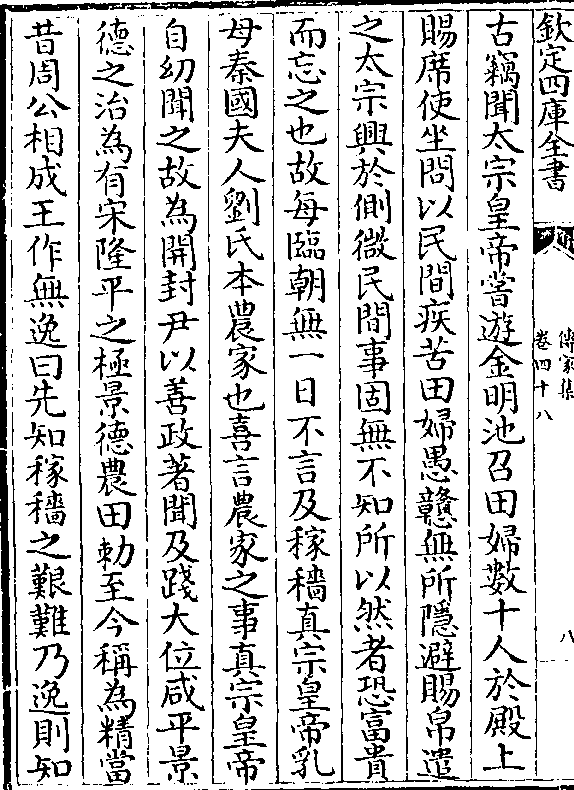 欽定四庫全書
傳家集
卷四十八
八
古竊聞太宗皇帝嘗遊金明池召田婦數十人於殿上
賜席使坐問以民間疾苦田婦愚戇無所隱避賜帛遣
之太宗興於側微民間事固無不知所以然者恐富貴
而忘之也故每臨朝無一日不言及稼穡真宗皇帝乳
母秦國夫人劉氏本農家也喜言農家之事真宗皇帝
自幼聞之故為開封尹以善政著聞及踐大位咸平景
德之治為有宋隆平之極景德農田勅至今稱為精當
昔周公相成王作無逸曰先知稼穡之艱難乃逸則知